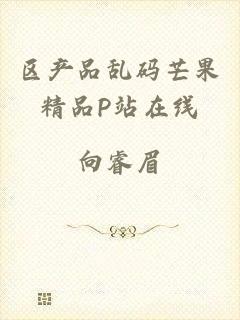 区产品乱码芒果
精品P站在线
向睿眉